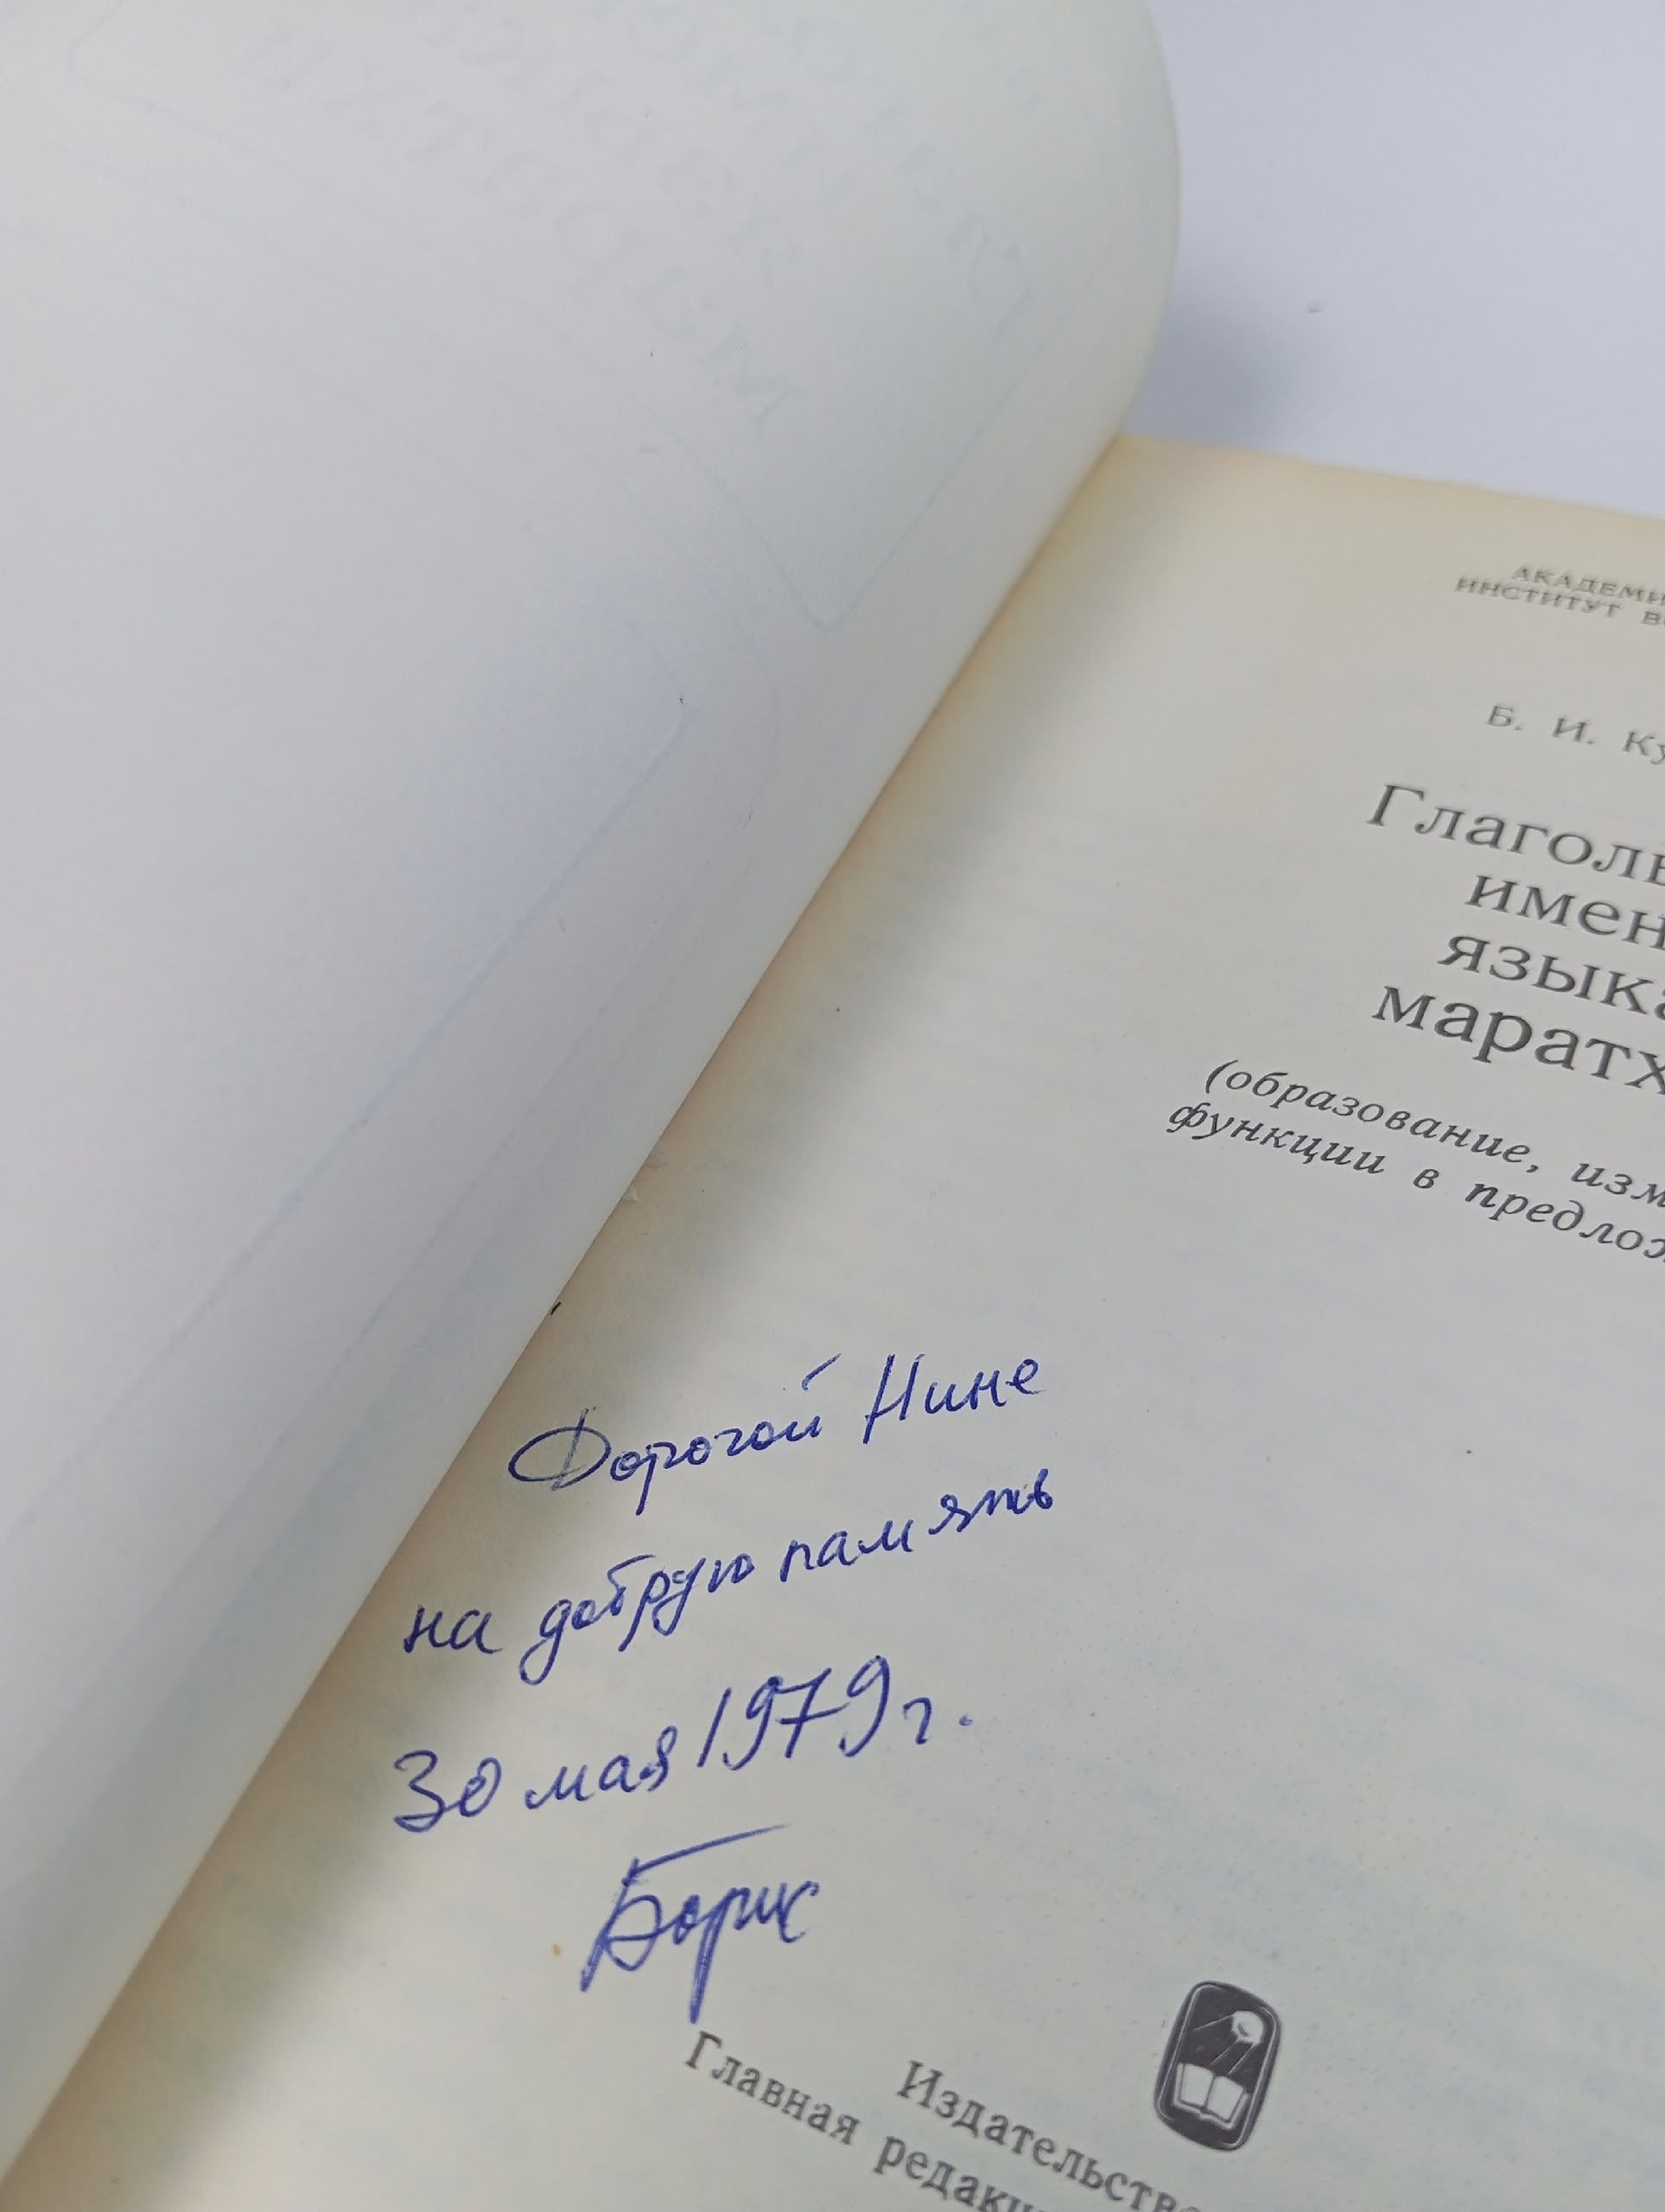 АКАДЕМИ
ИНСТИТУТ В
Б. И. Ку
Глаголь
имен
языка
маратх
(образование, изм
функции в предлож
Дорогой Нине
на добрую память
30 мая 1979 г.
Борис
Издательство
Главная редакц